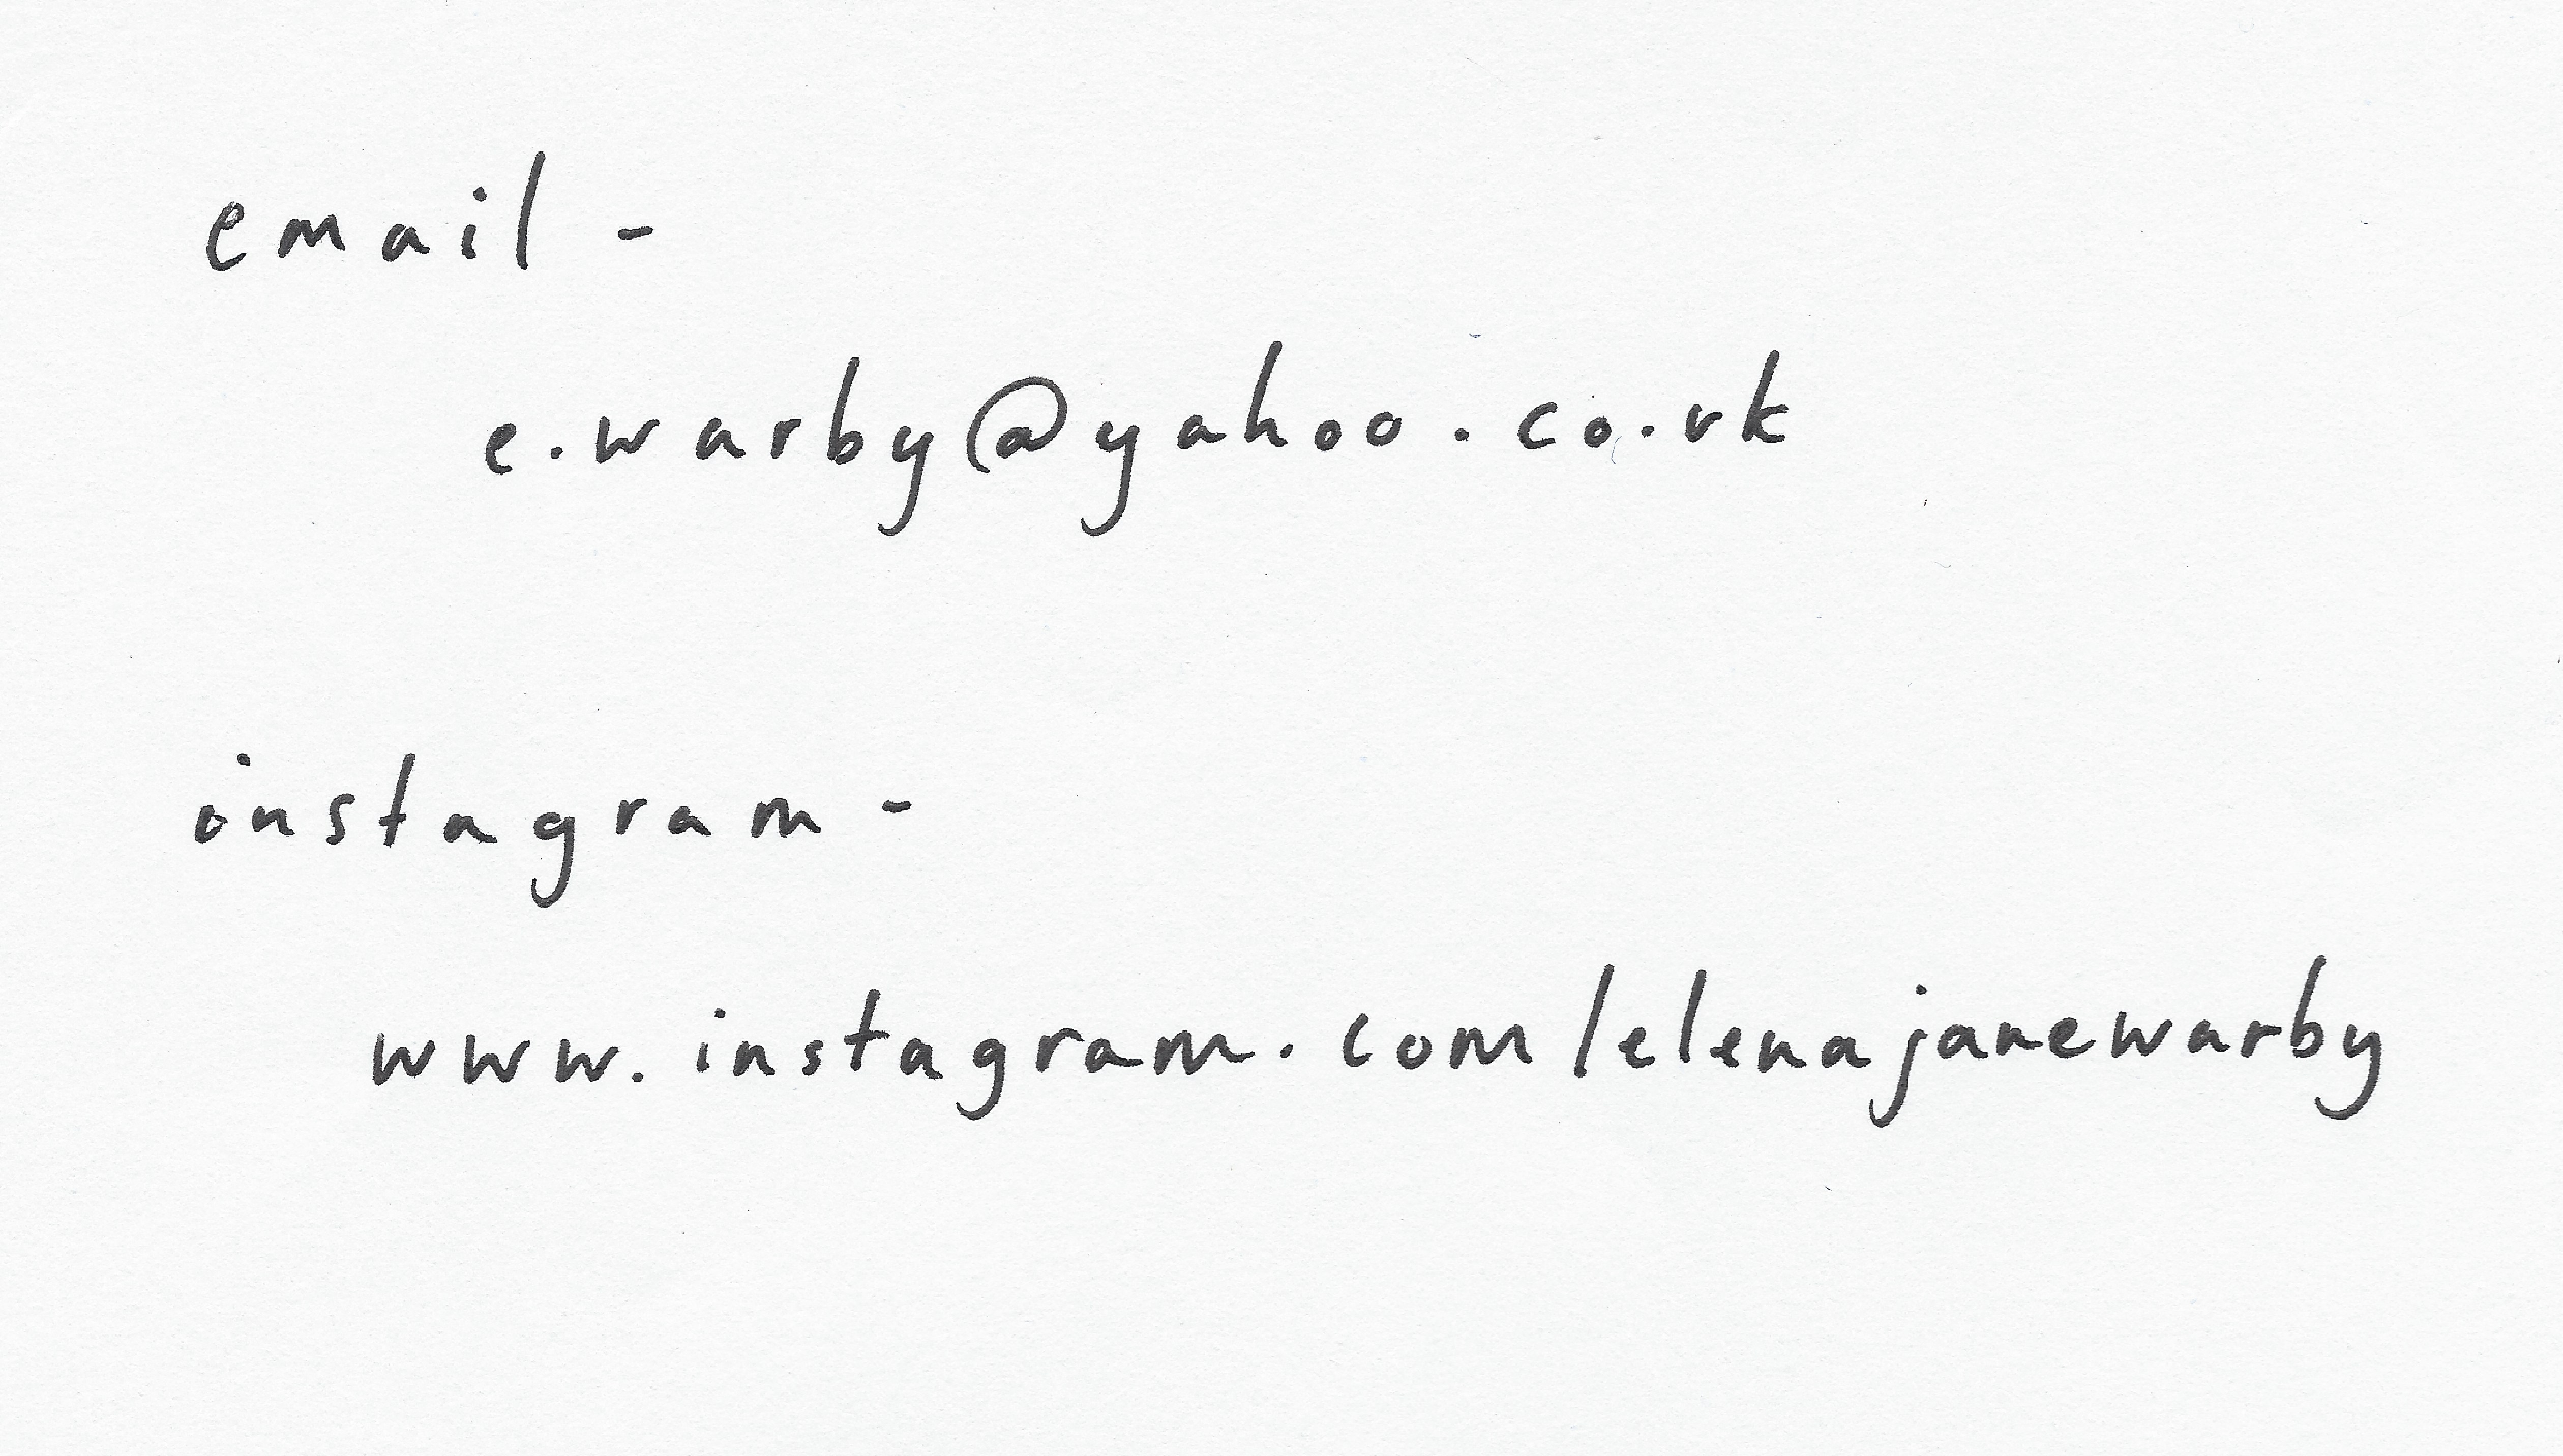 email -
e.warby@yahoo.co.uk
instagram -
www.instagram.com/elenajanewarby